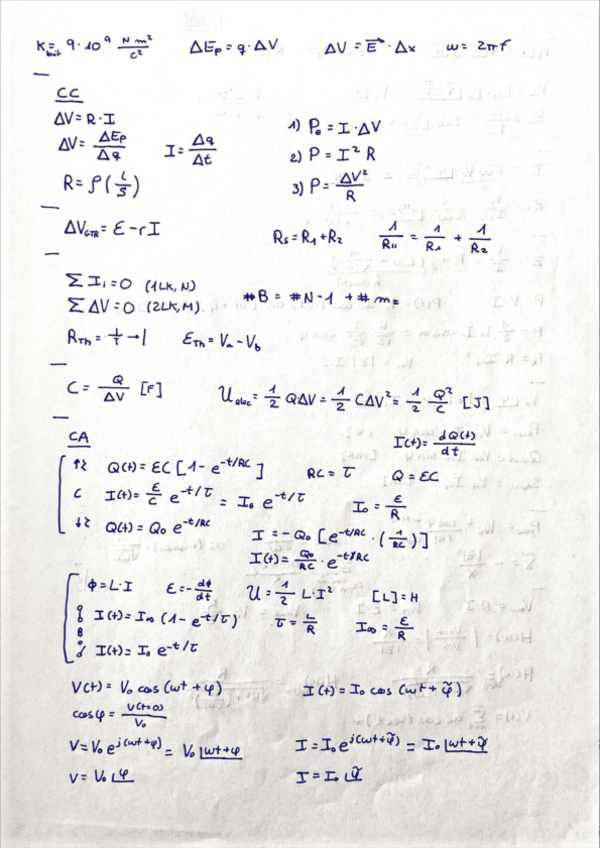 K = 9·10⁹ N m²/C²   ΔEp = q·ΔV   ΔV = E⃗·Δx   ω = 2πf
CC
ΔV = R·I   1) Pe = I·ΔV
ΔV = ΔEp/Δq   I = Δq/Δt   2) P = I² R
R = ρ(L/S)   3) P = ΔV²/R
ΔV_GTR = ε - rI   Rs = R1 + R2   1/R11 = 1/R1 + 1/R2
Σ Ii = 0 (1LK, N)   #B = #N-1 + #m
Σ ΔV = 0 (2LK, M)
RTh   εTh = Va - Vb
C = Q/ΔV [F]   Uelec = 1/2 QΔV = 1/2 CΔV² = 1/2 Q²/C [J]
CA   I(t) = dQ(t)/dt
↑ Q(t) = εC [1 - e^-t/RC]   RC = τ   Q = εC
C I(t) = ε/C e^-t/τ = I0 e^-t/τ   I0 = ε/R
↓ Q(t) = Q0 e^-t/RC   I = -Q0 [e^-t/RC · (1/RC)]
I(t) = Q0/RC · e^-t/RC
ϕ = L·I   ε = -dϕ/dt   U = 1/2 L·I²   [L] = H
I(t) = I∞ (1 - e^-t/τ)   τ = L/R   I∞ = ε/R
B
I(t) = I0 e^-t/τ
V(t) = V0 cos (ωt + φ)   I(t) = I0 cos (ωt + φ̃)
cosφ = V(t=0)/V0
V = V0 e^j(ωt+φ) = V0 ∠ωt+φ   I = I0 e^j(ωt+φ̃) = I0 ∠ωt+φ̃
V = V0 ∠φ   I = I0 ∠φ̃